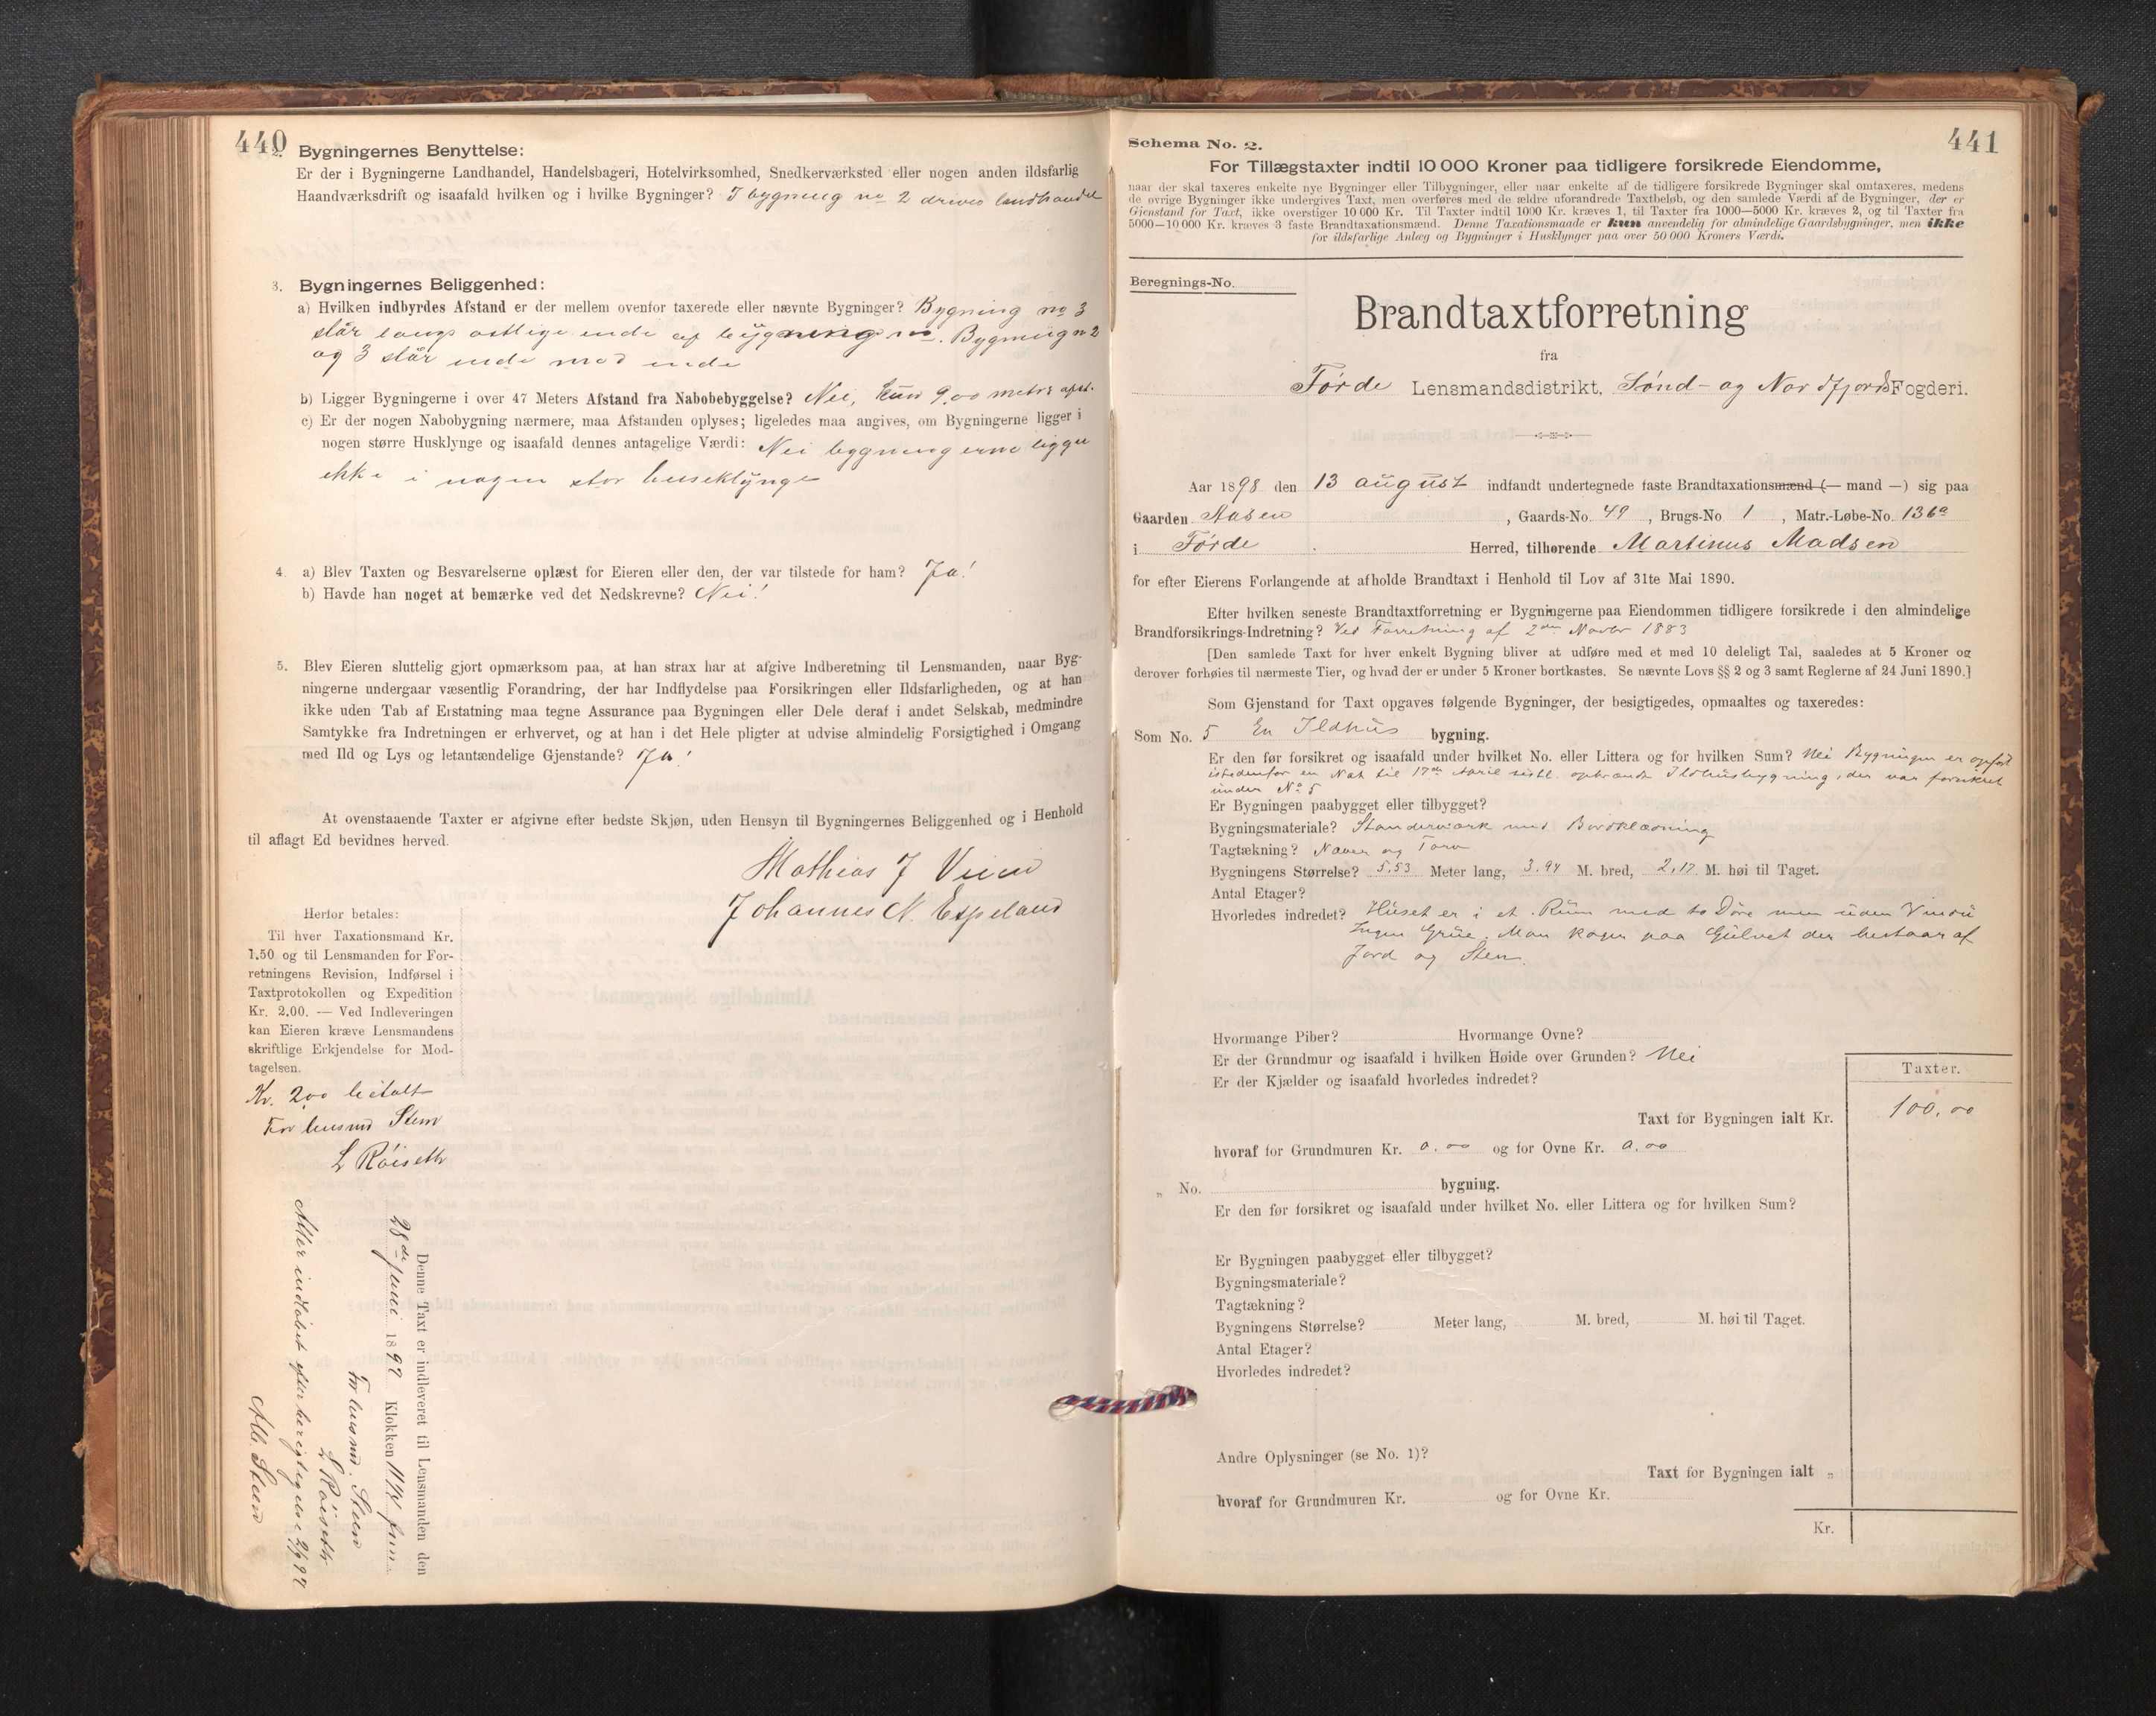 440
2. Bygningernes Benyttelse:
Er der i Bygningerne Landhandel, Handelsbageri, Hotelvirksomhed, Snedkerværksted eller nogen anden ildsfarlig
Haandværksdrift og isaafald hvilken og i hvilke Bygninger? I bygning no 2 drives landhandel
3. Bygningernes Beliggenhed:
a) Hvilken indbyrdes Afstand er der mellem ovenfor taxerede eller nævnte Bygninger? Bygning no 3
står langs østlige ende af bygning no. Bygning n 2
og 3 står ende mod ende
b) Ligger Bygningerne i over 47 Meters Afstand fra Nabobebyggelse? Nei, kun 9,00 metrs afst.
c) Er der nogen Nabobygning nærmere, maa Afstanden oplyses; ligeledes maa angives, om Bygningerne ligger i
nogen større Husklynge og isaafald dennes antagelige Værdi: Nei bygningerne ligger
ikke i nogen stor huseklynge
4. a) Blev Taxten og Besvarelserne oplæst for Eieren eller den, der var tilstede for ham? Ja!
b) Havde han noget at bemærke ved det Nedskrevne? Nei!
5. Blev Eieren sluttelig gjort opmærksom paa, at han strax har at afgive Indberetning til Lensmanden, naar Byg-
ningerne undergaar væsentlig Forandring, der har Indflydelse paa Forsikringen eller Ildsfarligheden, og at han
ikke uden Tab af Erstatning maa tegne Assurance paa Bygningen eller Dele deraf i andet Selskab, medmindre
Samtykke fra Indretningen er erhvervet, og at han i det Hele pligter at udvise almindelig Forsigtighed i Omgang
med Ild og Lys og letantændelige Gjenstande? Ja!
At ovenstaaende Taxter er afgivne efter bedste Skjøn, uden Hensyn til Bygningernes Beliggenhed og i Henhold
til aflagt Ed bevidnes herved.
Mathias J
Johannes N. Espeland
Herfor betales:
Til hver Taxationsmand Kr.
1.50 og til Lensmanden for For-
retningens Revision, Indførsel i
Taxtprotokollen og Expedition
Kr. 2.00. — Ved Indleveringen
kan Eieren kræve Lensmandens
skriftlige Erkjendelse for Mod-
tagelsen.
Kr. 2,00 betalt
For lensmd Steen
L Röiseth
Denne Taxt er indleveret til Lensmanden den
28de juni 1898 Klokken 11 1/2 fm.
For lensmd. Steen
L Röiseth
Alb. Steen
441
Schema No. 2.
For Tillægstaxter indtil 10 000 Kroner paa tidligere forsikrede Eiendomme,
naar der skal taxeres enkelte nye Bygninger eller Tilbygninger, eller naar enkelte af de tidligere forsikrede Bygninger skal omtaxeres, medens
de øvrige Bygninger ikke undergives Taxt, men overføres med de ældre uforandrede Taxtbeløb, og den samlede Værdi af de Bygninger, der er
Gjenstand for Taxt, ikke overstiger 10 000 Kr. Til Taxter indtil 1000 Kr. kræves 1, til Taxter fra 1000—5000 Kr. kræves 2, og til Taxter fra
5000—10 000 Kr. kræves 3 faste Brandtaxationsmænd. Denne Taxationsmaade er kun anvendelig for almindelige Gaardsbygninger, men ikke
for ildsfarlige Anlæg og Bygninger i Husklynger paa over 50 000 Kroners Værdi.
Beregnings-No.
Brandtaxtforretning
fra
Førde Lensmandsdistrikt, Sønd- og Nordfjords Fogderi.
Aar 1898 den 13 august indfandt undertegnede faste Brandtaxationsmænd (— mand —) sig paa
Gaarden Aasen, Gaards-No. 49, Brugs-No 1, Matr.-Løbe-No. 136a
i Førde Herred, tilhørende Martinus Madsen
for efter Eierens Forlangende at afholde Brandtaxt i Henhold til Lov af 31te Mai 1890.
Efter hvilken seneste Brandtaxtforretning er Bygningerne paa Eiendommen tidligere forsikrede i den almindelige
Brandforsikrings-Indretning? Ved Forretning af 2den Novbr 1883
[Den samlede Taxt for hver enkelt Bygning bliver at udføre med et med 10 deleligt Tal, saaledes at 5 Kroner og
derover forhøies til nærmeste Tier, og hvad der er under 5 Kroner bortkastes. Se nævnte Lovs §§ 2 og 3 samt Reglerne af 24 Juni 1890.]
Som Gjenstand for Taxt opgaves følgende Bygninger, der besigtigedes, opmaaltes og taxeredes:
Som No. 5 En Ildhus bygning.
Er den før forsikret og isaafald under hvilket No. eller Littera og for hvilken Sum? Nei Bygningen er opført
istedenfor en Nat til 17de April sidstl. opbrændt Ildhusbygning, der var forsikret
under No. 5
Er Bygningen paabygget eller tilbygget?
Bygningsmateriale? Standerværk med Bordklædning
Tagtækning? Næver og Torv
Bygningens Størrelse? 5,53 Meter lang, 3,94 M. bred, 2,17 M. høi til Taget.
Antal Etager?
Hvorledes indredet? Huset er i et Rum med to Døre men uden Vindu
Ingen Grue. Man koger paa Gulvet der bestaar af
Jord og Sten.
Hvormange Piber? Hvormange Ovne?
Er der Grundmur og isaafald i hvilken Høide over Grunden? Nei
Er der Kjælder og isaafald hvorledes indredet?
Taxter.
Taxt for Bygningen ialt Kr. 100,00
hvoraf for Grundmuren Kr. 0.00 og for Ovne Kr. 0,00
„ No. bygning.
Er den før forsikret og isaafald under hvilket No. eller Littera og for hvilken Sum?
Er Bygningen paabygget eller tilbygget?
Bygningsmateriale?
Tagtækning?
Bygningens Størrelse? Meter lang, M. bred, M. høi til Taget.
Antal Etager?
Hvorledes indredet?
Andre Oplysninger (se No. 1)?
Taxt for Bygningen ialt „
hvoraf for Grundmuren Kr. og for Ovne Kr.
Kr.